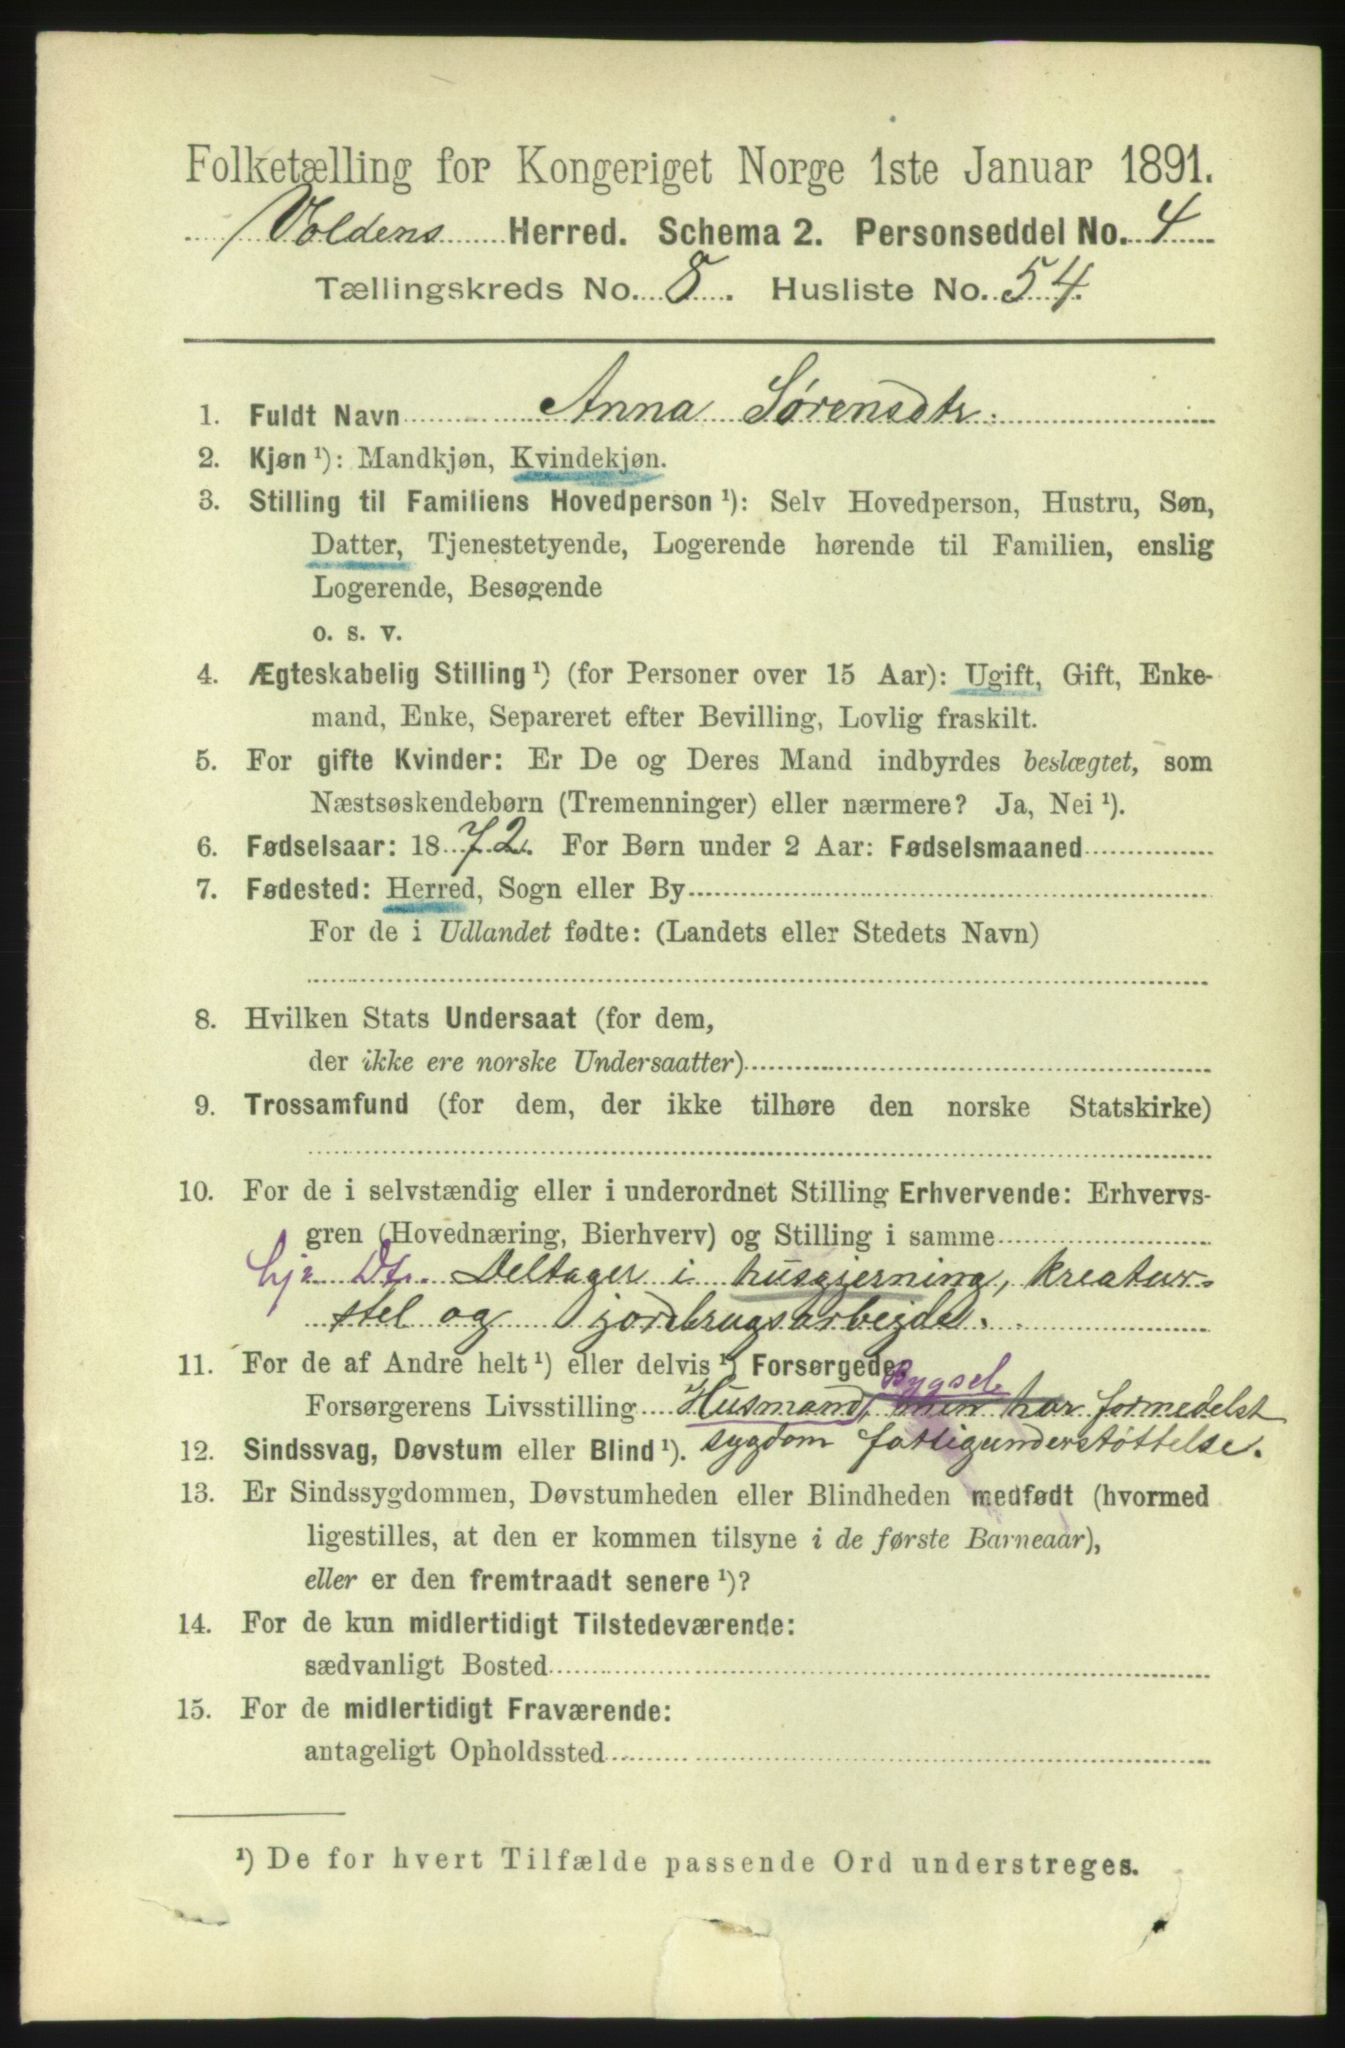 Folketælling for Kongeriget Norge 1ste Januar 1891.
Voldens Herred. Schema 2. Personseddel No. 4
Tællingskreds No. 8. Husliste No. 54.
1. Fuldt Navn Anna Sørensdtr.
2. Kjøn ¹): Mandkjøn, Kvindekjøn.
3. Stilling til Familiens Hovedperson ¹): Selv Hovedperson, Hustru, Søn,
Datter, Tjenestetyende, Logerende hørende til Familien, enslig
Logerende, Besøgende
o. s. v.
4. Ægteskabelig Stilling ¹) (for Personer over 15 Aar): Ugift, Gift, Enke-
mand, Enke, Separeret efter Bevilling, Lovlig fraskilt.
5. For gifte Kvinder: Er De og Deres Mand indbyrdes beslægtet, som
Næstsøskendebørn (Tremenninger) eller nærmere? Ja, Nei ¹).
6. Fødselsaar: 1872. For Børn under 2 Aar: Fødselsmaaned
7. Fødested: Herred, Sogn eller By
For de i Udlandet fødte: (Landets eller Stedets Navn)
8. Hvilken Stats Undersaat (for dem,
der ikke ere norske Undersaatter)
9. Trossamfund (for dem, der ikke tilhøre den norske Statskirke)
10. For de i selvstændig eller i underordnet Stilling Erhvervende: Erhvervs-
gren (Hovednæring, Bierhverv) og Stilling i samme
hje Dtr. Deltager i husgjerning, kreatur-
stel og jordbrugsarbejde.
11. For de af Andre helt ¹) eller delvis ¹) Forsørgede
Bygsel
Forsørgerens Livsstilling Husmand, men har formedelst
sygdom fattigunderstøttelse.
12. Sindssvag, Døvstum eller Blind ¹).
13. Er Sindssygdommen, Døvstumheden eller Blindheden medfødt (hvormed
ligestilles, at den er kommen tilsyne i de første Barneaar),
eller er den fremtraadt senere ¹)?
14. For de kun midlertidigt Tilstedeværende:
sædvanligt Bosted
15. For de midlertidigt Fraværende:
antageligt Opholdssted
¹) De for hvert Tilfælde passende Ord understreges.